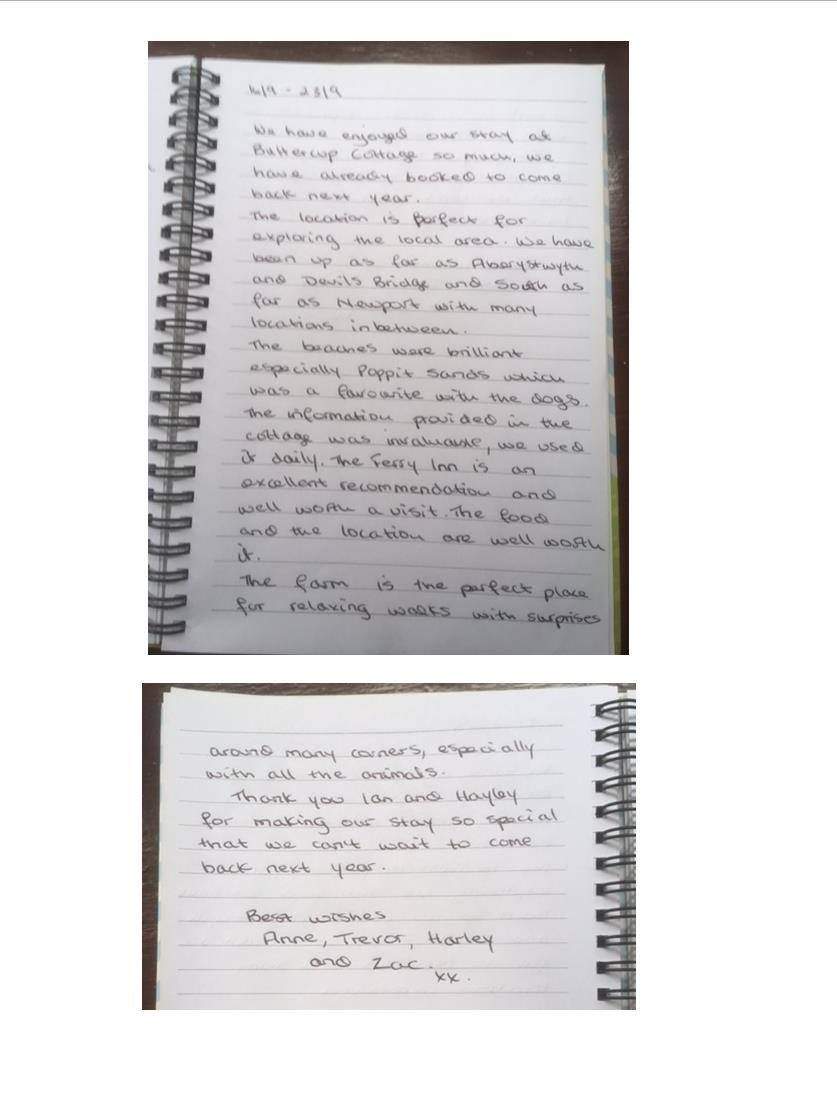 16/9 - 23/9
We have enjoyed our stay at
Buttercup Cottage so much, we
have already booked to come
back next year.
The location is perfect for
exploring the local area. We have
been up as far as Aberystwyth
and Devils Bridge and South as
far as Newport with many
locations inbetween.
The beaches were brilliant
especially Poppit Sands which
was a favourite with the dogs.
The information provided in the
cottage was invaluable, we used
it daily. The Ferry Inn is an
excellent recommendation and
well worth a visit. The food
and the location are well worth
it.
The farm is the perfect place
for relaxing walks with surprises
around many corners, especially
with all the animals.
Thank you Ian and Hayley
for making our stay so special
that we can't wait to come
back next year.
Best wishes
Anne, Trevor, Harley
and Zac.
xx.